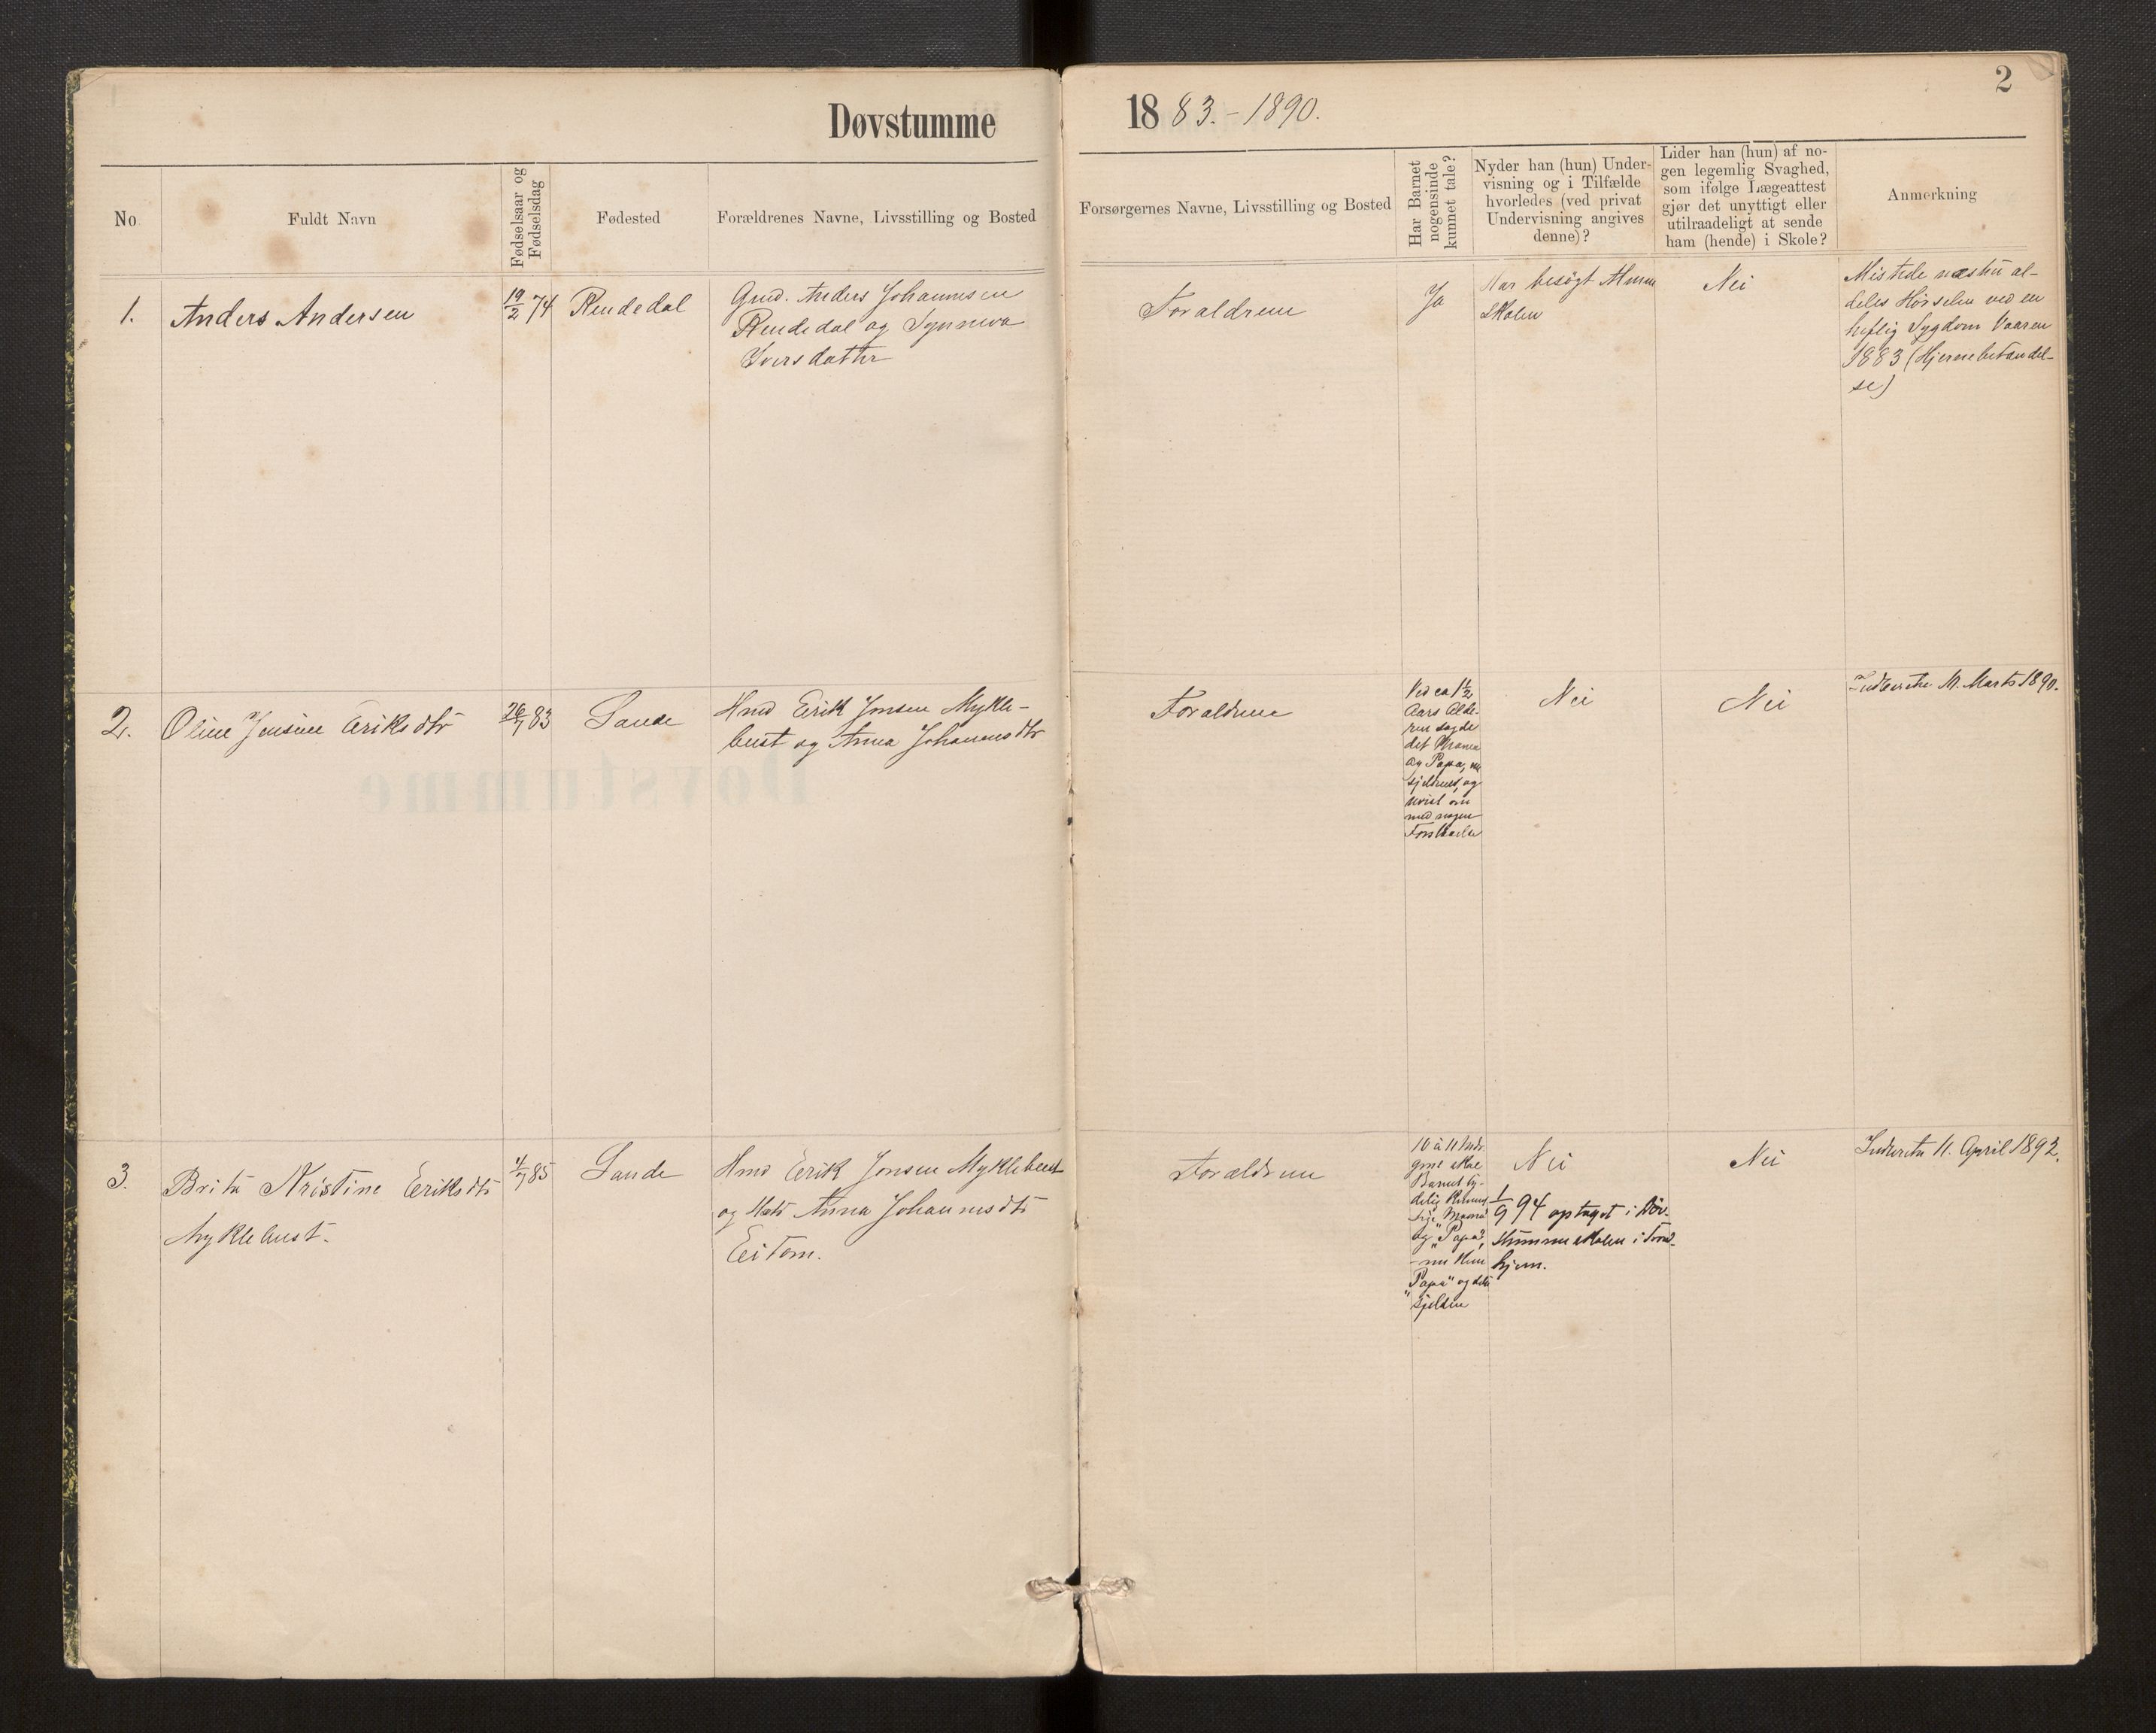 2
Døvstumme
1883.-1890.
No
Fuldt Navn
Fødselsaar og
Fødselsdag
Fødested
Forældrenes Navne, Livsstilling og Bosted
Forsørgernes Navne, Livsstilling og Bosted
Har Barnet
nogensinde
kunnet tale?
Nyder han (hun) Under-
visning og i Tilfælde
hvorledes (ved privat
Undervisning angives
denne)?
Lider han (hun) af no-
gen legemlig Svaghed,
som ifølge Lægeattest
gjør det unyttigt eller
utilraadeligt at sende
ham (hende) i Skole?
Anmerkning
1.
Anders Andersen
19/2 74
Rendedal
Gmd. Anders Johannesen
Rendedal og Synneva
Iversdatter
Forældrene
Ja
Har besøgt Almue
Skolen
Nei
Mistede næsten al-
deles Hørselen ved en
heftig Sygdom Vaaren
1883 (Hjernebetændel-
se)
2.
Oline Jensine Eriksdtr
26/7 83
Sande
Hmd Erik Jonsen Mykle-
bust og Anna Johannesdtr
Forældrene
Ved ca 1½
Aars Alde-
ren sagde
det Mama
og Papa, nu
sjeldnere, og
uvist om
med nogen
Forstaaelse
Nei
Nei
Indberettet 11. Marts 1890.
3.
Brite Kristine Eriksdtr
Myklebust.
4/7 85
Sande
Hmd Erik Jonsen Myklebust
og Anna Johannesdtr
Eitom.
Forældrene
10 à 11 Mdr
skal
Barnet ty-
delig kunne
sige "Mama"
og "Papa",
- nu kun
"Papa" og det
sjelden
Nei
1/9 94 optaget i Døv-
stummeskolen i Trond-
hjem.
Nei
Indberettet 11. April 1892.